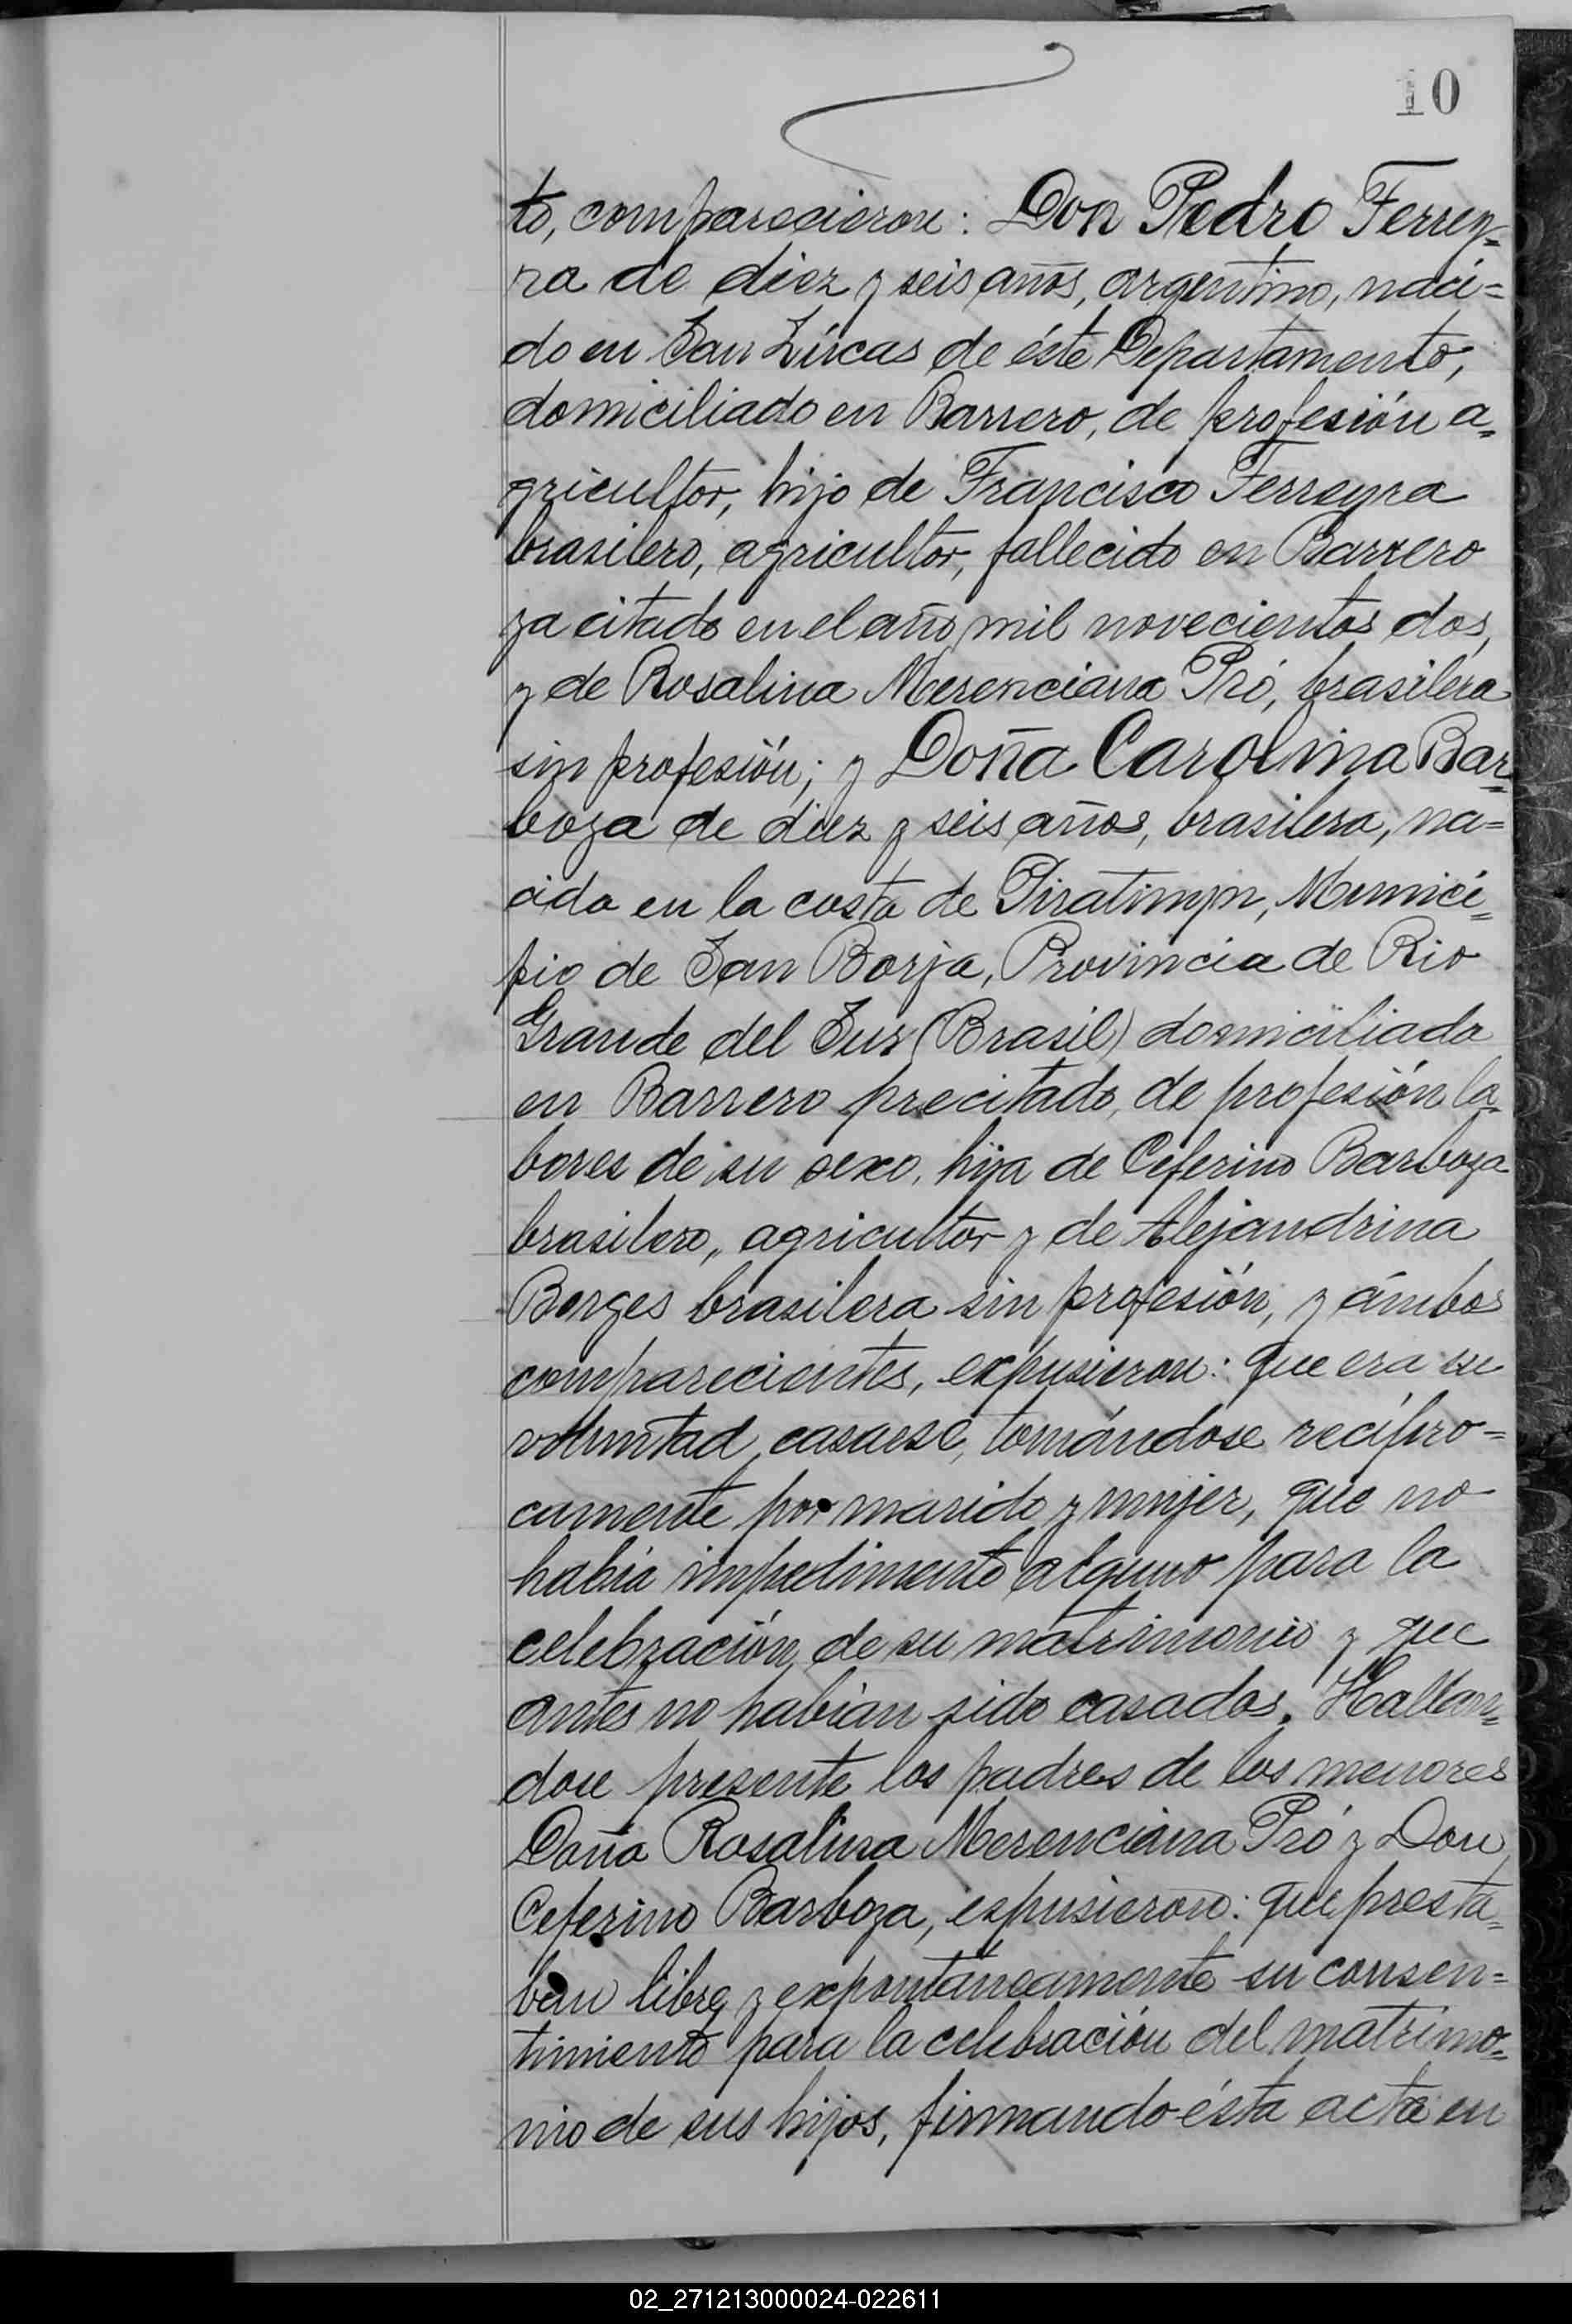 10
to, comparecieron: Don Pedro Ferrey=
ra de diez y seis años, argentino, naci=
do en San Lúcas de éste Departamento,
domiciliado en Barrero, de profesión a=
gricultor, hijo de Francisco Ferreyra
brasilero, agricultor, fallecido en Barrero
ya citado en el año mil novecientos dos,
y de Rosalina Merenciana Pró, brasilera
sin profesión; y Doña Carolina Bar=
boza de diez y seis años, brasilera, na=
cida en la costa de Piratimyn, Munici=
pio de San Borja, Provincia de Rio
Grande del Sur (Brasil) domiciliada
en Barrero precitado, de profesión la=
bores de su sexo, hija de Ceferino Barboza
brasilero, agricultor y de Alejandrina
Borges brasilera sin profesión, y ámbos
comparecientes, expusieron: que era su
voluntad casarse, tomándose recípro=
camente por marido y mujer, que no
había impedimento alguno para la
celebración de su matrimonio y que
antes no habían sido casados. Hallan=
dose presente los padres de los menores
Doña Rosalina Merenciana Pró y Don
Ceferino Barboza, expusieron: que presta=
ban libre y expontáneamente su consen=
timiento para la celebración del matrimo=
nio de sus hijos, firmando ésta acta en
02_271213000024-022611